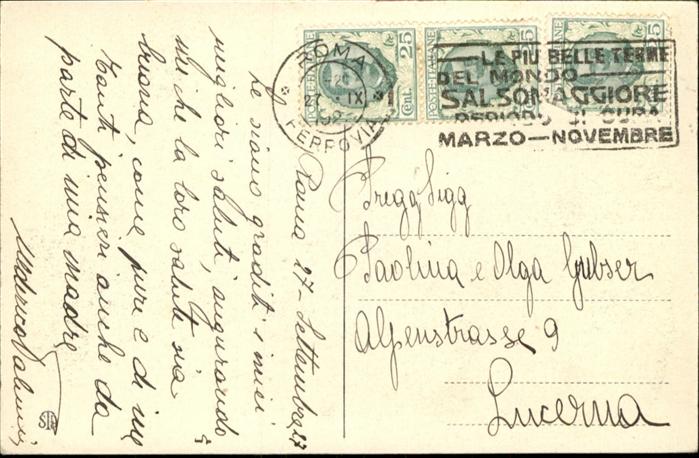 POSTE ITALIANE
25
Cent.
POSTE ITALIANE
25
POSTE ITALIANE
25
ROMA
27 IX
FERROVIA
LE PIÙ BELLE TERME
DEL MONDO
SALSOMAGGIORE
PERIODO DI CURA
MARZO — NOVEMBRE
Roma 27 - Settembre 27
Le siano graditi i miei
migliori saluti, augurando
che la loro salute sia
buona, come pure è di me
Tanti pensieri anche da
parte di mia madre
Pregg Sigg
Paolina e Olga Gubser
Alpenstrasse 9
Lucerna